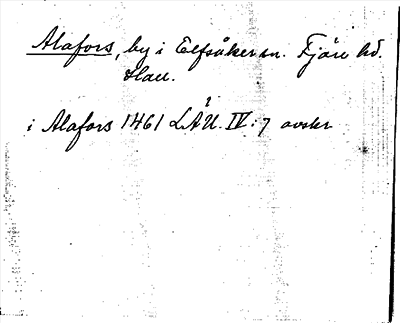 Alafors, by i Elfsåker sn. Fjäre hd.
Hall.
i Alafors 1461 LÅU. IV: 7 avskr